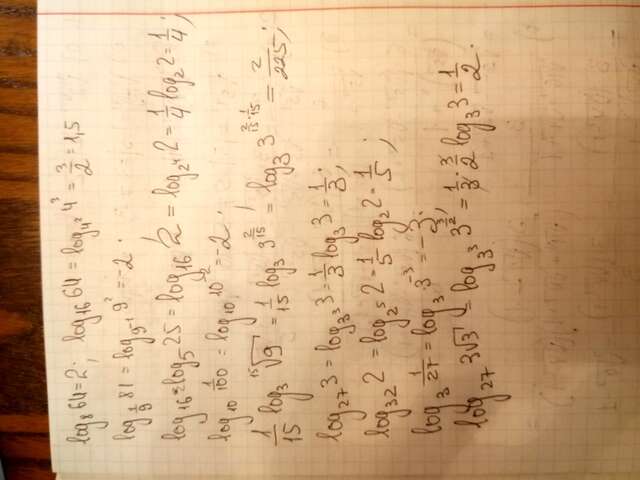 log₈64=2; log₁₆64=log₄²4³=3/2=1,5
log_{1/9}81=log_{9⁻¹}9²=-2;
log₁₆log₅25=log₁₆2=log_{2⁴}2=1/4 log₂2=1/4;
log₁₀ 1/100=log₁₀10⁻²=-2;
1/15 log₃ ¹⁵√9=1/15 log₃3^{2/15}=log₃3^{2/15·1/15}=2/225;
log₂₇3=log_{3³}3=1/3 log₃3=1/3;
log₃₂2=log_{2⁵}2=1/5 log₂2=1/5;
log₃ 1/27=log₃3⁻³=-3;
log₂₇ 3√3=log_{3³}3^{3/2}=1/3·3/2 log₃3=1/2.